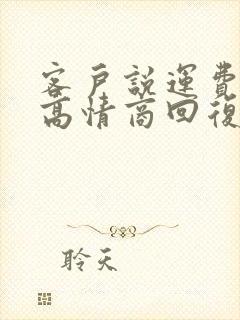 客戶說運費
高情商回復
聆天